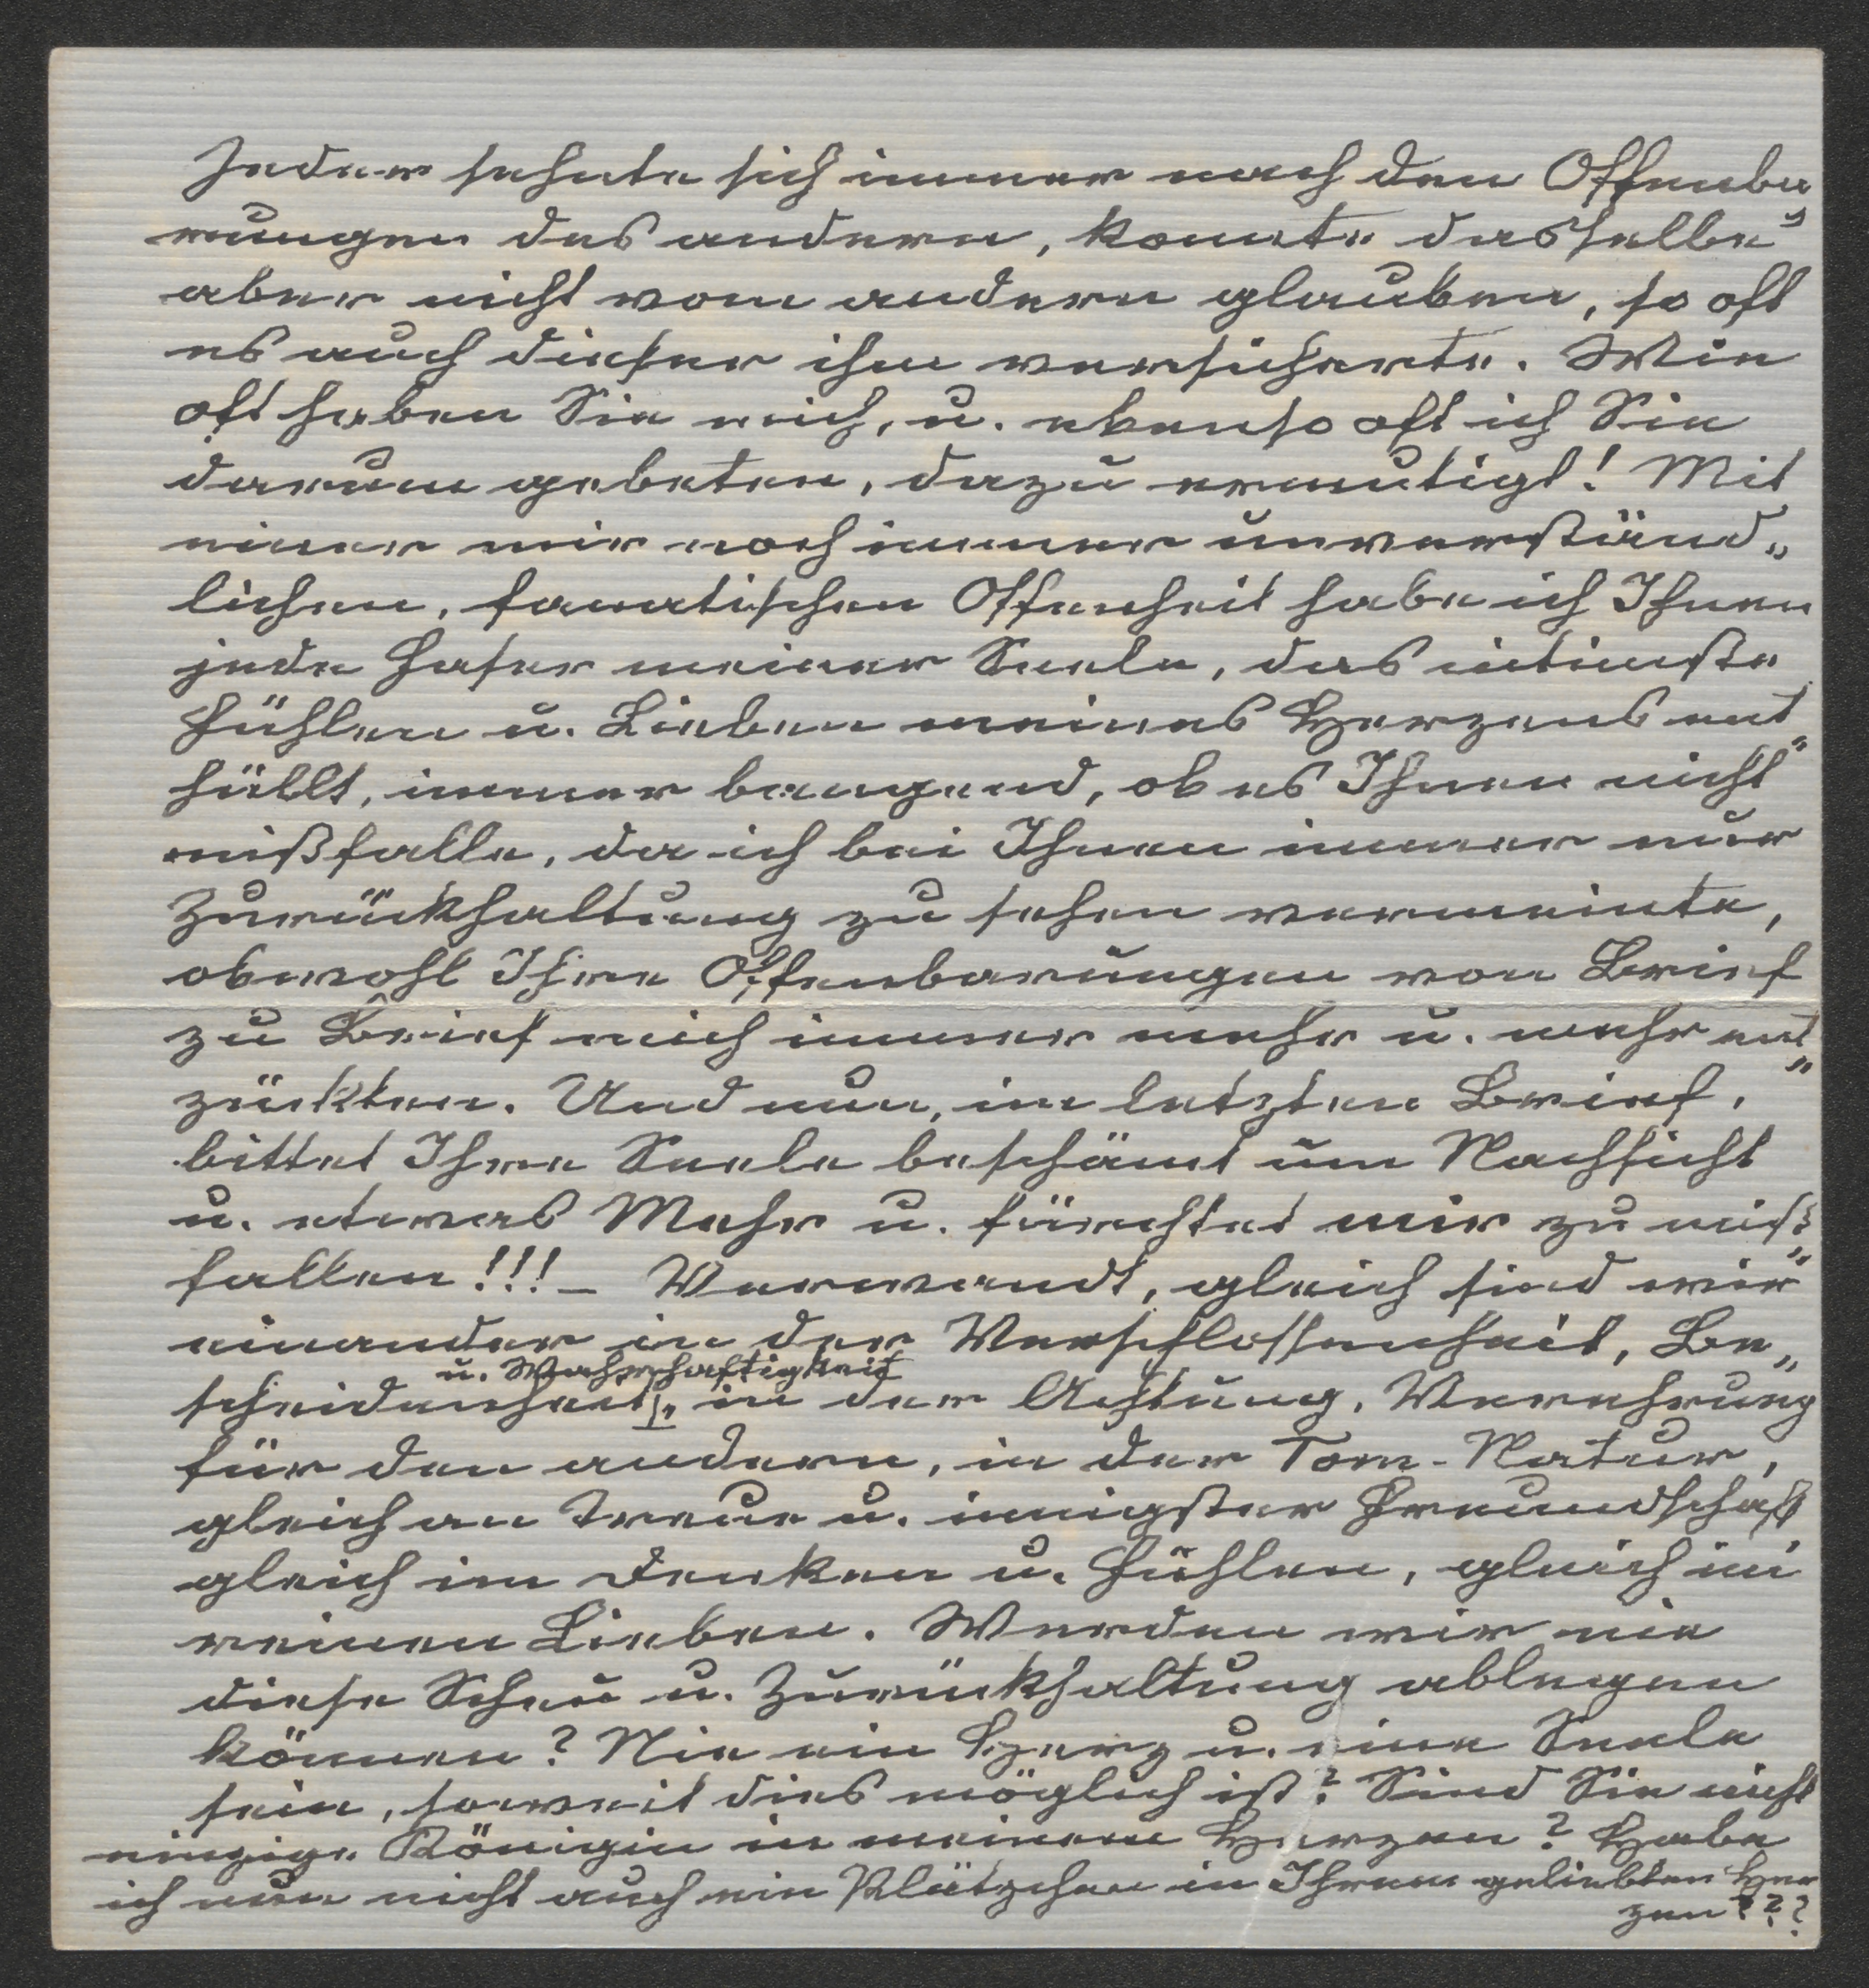 Jeder sehnte sich immer nach den Offenba„
rungen des andern, konnte dasselbe
aber nicht vom andern glauben, so oft
es auch dieser ihm versicherte. Wie
oft haben Sie mich, u. ebenso oft ich Sie
darum gebeten, dazu ermutigt! Mit
einer mir noch immer unverständ„
lichen, fanatischen Offenheit habe ich Ihnen
jede Faser meiner Seele, das intimste
Fühlen u. Lieben meines Herzens ent„
hüllt, immer bangend, ob es Ihnen nicht
mißfalle, da ich bei Ihnen immer nur
Zurückhaltung zu sehen vermeinte,
obwohl Ihre Offenbarungen von Brief
zu Brief mich immer mehr u. mehr ent„
zückten. Und nun, im letzten Brief,
bittet Ihre Seele beschämt um Nachsicht
u. etwas Mehr u. fürchtet mir zu miß„
fallen!!! – Verwandt, gleich sind wir
einander in der Verschlossenheit, Be„
u. Wahrhaftigkeit
scheidenheit, in der Achtung, Verehrung
für den andern, in der Tom-Natur,
gleich an Treue u. innigster Freundschaft
gleich im Denken u. Fühlen, gleich im
reinen Lieben. Werden wir nie
diese Scheu u. Zurückhaltung ablegen
können? Nie ein Herz u. eine Seele
sein, soweit dies möglich ist? Sind Sie nicht
einzige Königin in meinem Herzen? Habe
ich nun nicht auch ein Plätzchen in Ihrem geliebten Her
zen???